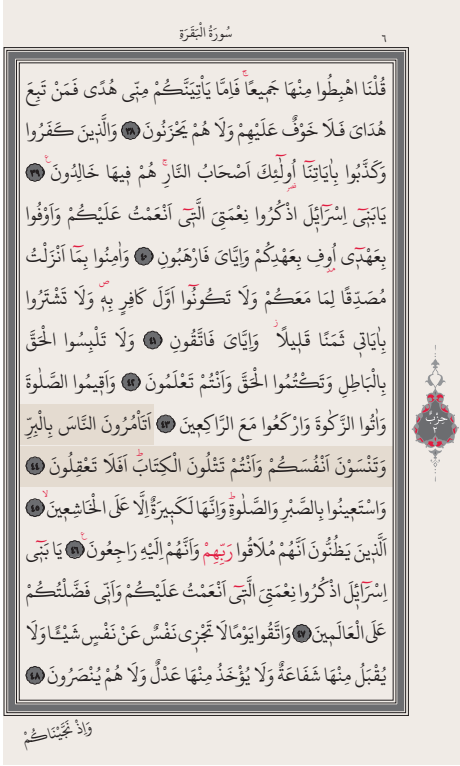 سُورَةُ الْبَقَرَةِ ٦
قُلْنَا اهْبِطُوا مِنْهَا جَمٖيعًاۚ فَاِمَّا يَأْتِيَنَّكُمْ مِنّٖى هُدًى فَمَنْ تَبِعَ
هُدَاىَ فَلَا خَوْفٌ عَلَيْهِمْ وَلَا هُمْ يَحْزَنُونَ ﴿٣٨﴾ وَالَّذٖينَ كَفَرُوا
وَكَذَّبُوا بِاٰيَاتِنَٓا اُولٰٓئِكَ اَصْحَابُ النَّارِۚ هُمْ فٖيهَا خَالِدُونَࣖ ﴿٣٩﴾
يَابَنٖٓى اِسْرَٓائٖلَ اذْكُرُوا نِعْمَتِىَ الَّتٖٓى اَنْعَمْتُ عَلَيْكُمْ وَاَوْفُوا
بِعَهْدٖٓى اُوفِ بِعَهْدِكُمْ وَاِيَّاىَ فَارْهَبُونِ ﴿٤٠﴾ وَاٰمِنُوا بِمَٓا اَنْزَلْتُ
مُصَدِّقًا لِمَا مَعَكُمْ وَلَا تَكُونُٓوا اَوَّلَ كَافِرٍ بِهٖࣕ وَلَا تَشْتَرُوا
بِاٰيَاتٖى ثَمَنًا قَلٖيلًاؗ وَاِيَّاىَ فَاتَّقُونِ ﴿٤١﴾ وَلَا تَلْبِسُوا الْحَقَّ
بِالْبَاطِلِ وَتَكْتُمُوا الْحَقَّ وَاَنْتُمْ تَعْلَمُونَ ﴿٤٢﴾ وَاَقٖيمُوا الصَّلٰوةَ
وَاٰتُوا الزَّكٰوةَ وَارْكَعُوا مَعَ الرَّاكِعٖينَ ﴿٤٣﴾ اَتَأْمُرُونَ النَّاسَ بِالْبِرِّ
وَتَنْسَوْنَ اَنْفُسَكُمْ وَاَنْتُمْ تَتْلُونَ الْكِتَابَؕ اَفَلَا تَعْقِلُونَ ﴿٤٤﴾
وَاسْتَعٖينُوا بِالصَّبْرِ وَالصَّلٰوةِؕ وَاِنَّهَا لَكَبٖيرَةٌ اِلَّا عَلَى الْخَاشِعٖينَۙ ﴿٤٥﴾
اَلَّذٖينَ يَظُنُّونَ اَنَّهُمْ مُلَاقُوا رَبِّهِمْ وَاَنَّهُمْ اِلَيْهِ رَاجِعُونَࣖ ﴿٤٦﴾ يَا بَنٖٓى
اِسْرَٓائٖلَ اذْكُرُوا نِعْمَتِىَ الَّتٖٓى اَنْعَمْتُ عَلَيْكُمْ وَاَنّٖى فَضَّلْتُكُمْ
عَلَى الْعَالَمٖينَ ﴿٤٧﴾ وَاتَّقُوا يَوْمًا لَا تَجْزٖى نَفْسٌ عَنْ نَفْسٍ شَيْـًٔا وَلَا
يُقْبَلُ مِنْهَا شَفَاعَةٌ وَلَا يُؤْخَذُ مِنْهَا عَدْلٌ وَلَا هُمْ يُنْصَرُونَ ﴿٤٨﴾
وَاِذْ نَجَّيْنَاكُمْ
حِزْبْ
٢